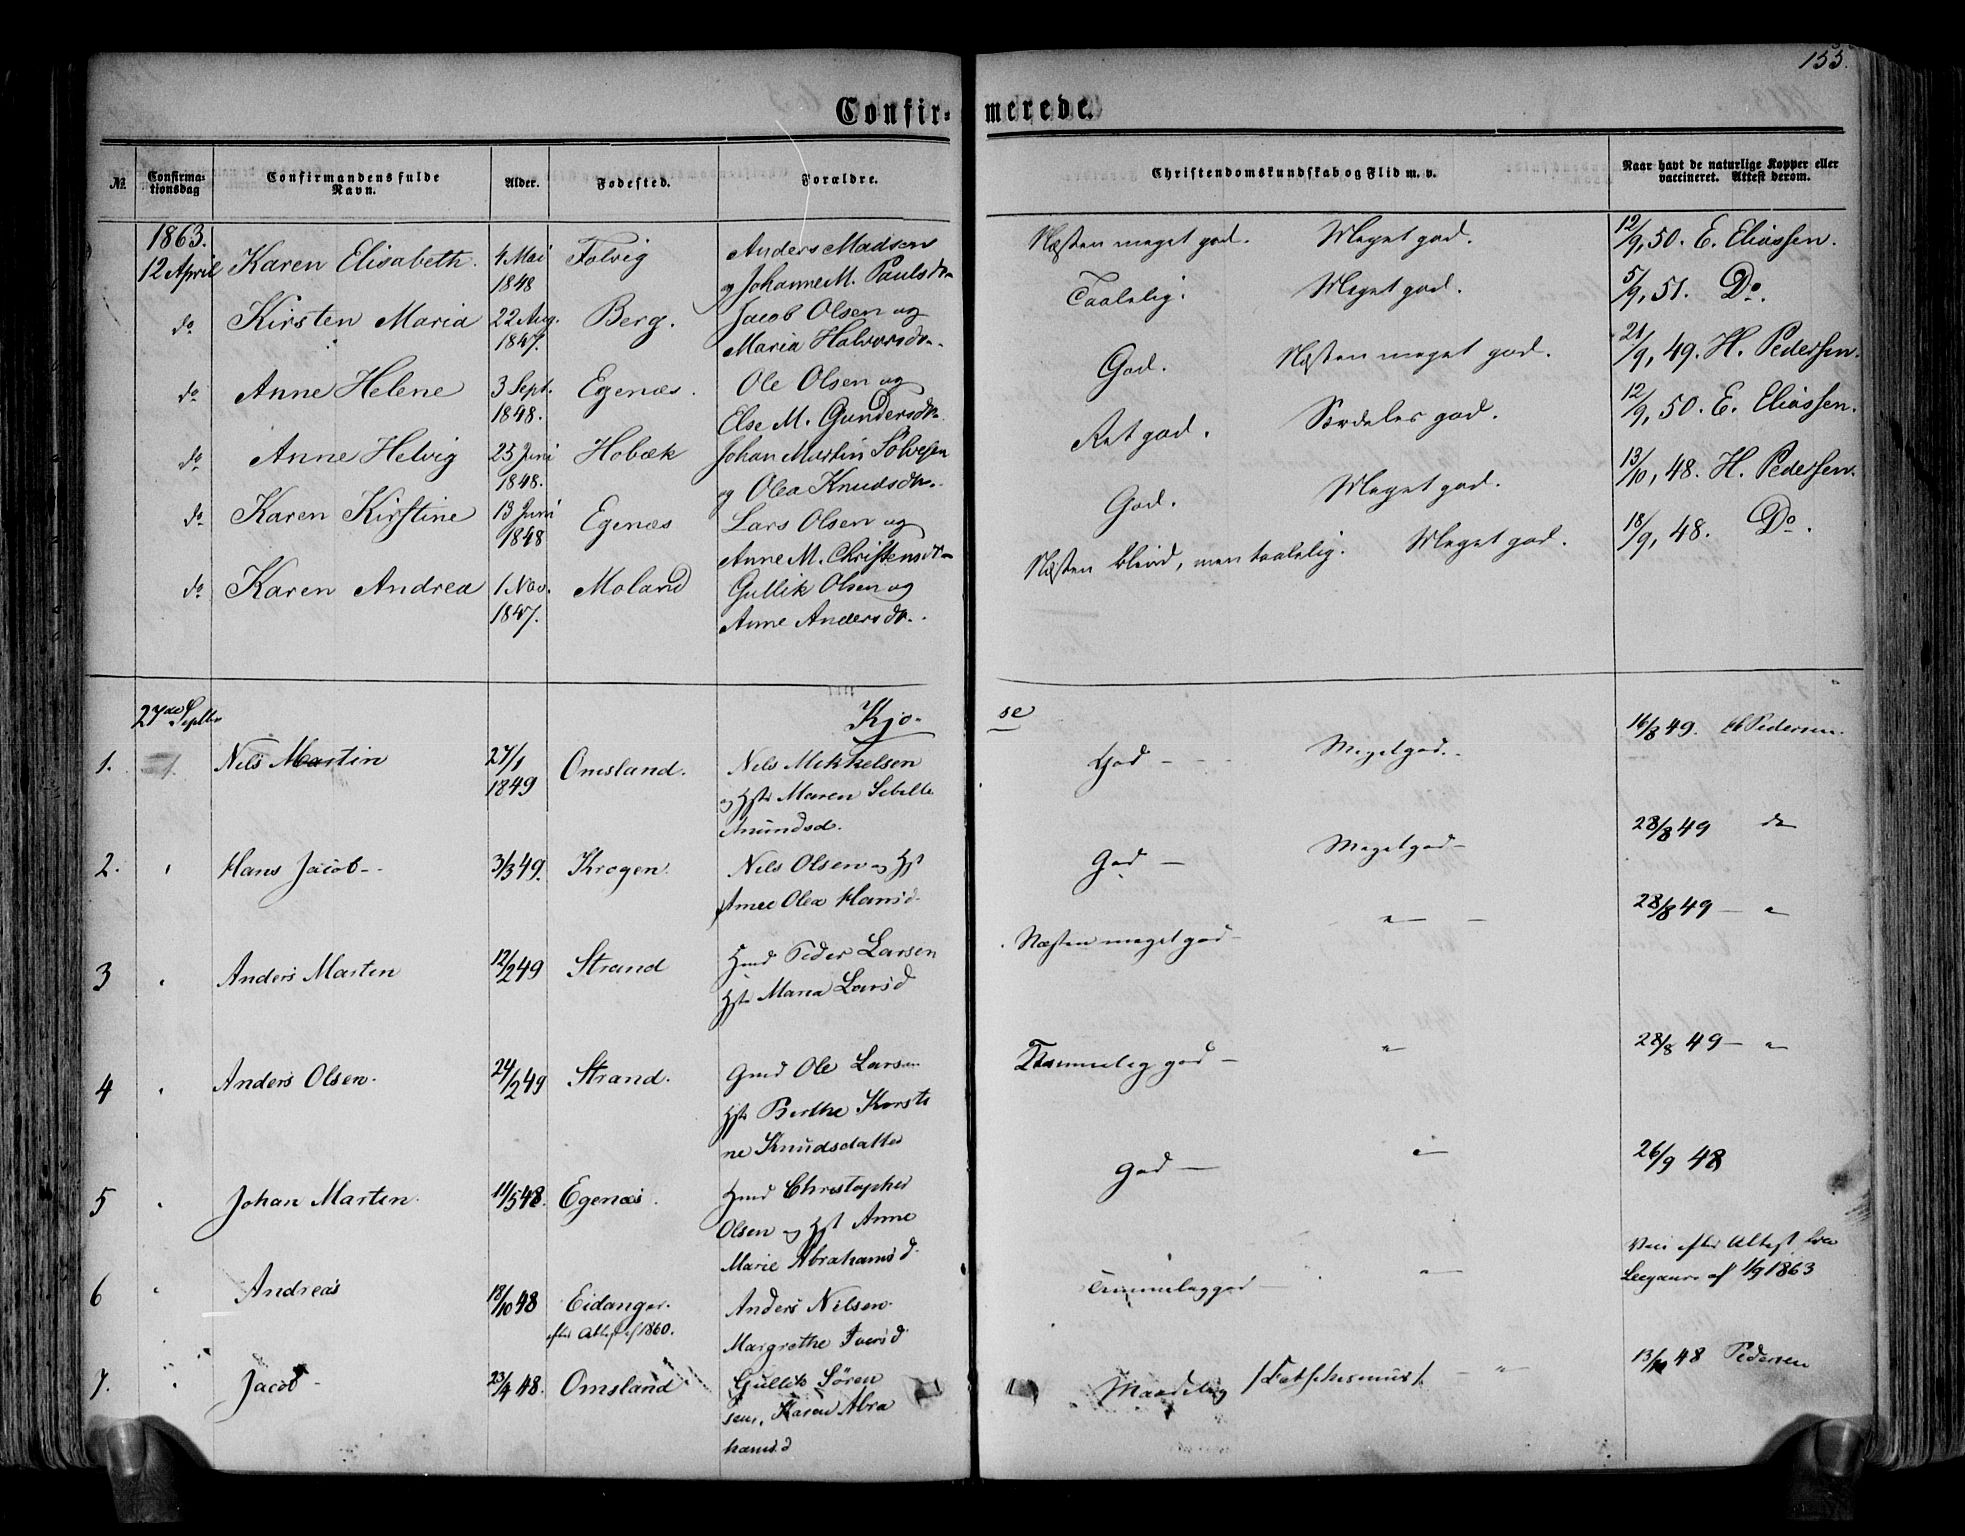 155.
Confirmerede.
No.
Confirmationsdag
Confirmandens fulde Navn.
Alder.
Fødested.
Forældre.
Christendomskundskab og Flid m. v.
Naar havt de naturlige Kopper eller vaccineret. Attest derom.
1863.
12 April Karen Elisabeth. 4 Mai 1848 Folvig Anders Madsen og Johanne M. Paulsdr. Næsten meget god. Meget god. 12/9, 50. E. Eliassen.
do Kirsten Maria 22 Aug. 1847. Berg. Jacob Olsen og Maria Halvorsdr. Taalelig. Meget god. 5/9, 51. Do.
do Anne Helene 3 Sept. 1848. Egenæs. Ole Olsen og Else M. Gundersdr. God. Næsten meget god. 21/9, 49. H. Pedersen.
do Anne Helvig 23 Juni 1848. Hobæk Johan Martin Sølvesen og Olea Knudsdr. Ret god. Særdeles god. 12/9, 50. E. Eliassen.
do Karen Kirstine 13 Juni 1848 Egenæs Lars Olsen og Anne M. Christensdr. God. Meget god. 13/10, 48. H. Pedersen.
do Karen Andrea 1 Nov. 1847. Moland Gullik Olsen og Anne Andersdr. Næsten blind, men taalelig. Meget god. 18/9, 48. Do.
27de Septbr
Kjøse
1. Nils Martin 27/1 1849 Omsland. Nils Mikkelsen og Hst. Maren Sibille Anundsd. God - Meget god. 16/8 49. H. Pedersen.
2. " Hans Jacob - 3/3 49. Krogen. Nils Olsen og Hst Anne Olea Hansd. God - Meget god - 28/8 49 do
3 " Anders Marten 12/2 49 Strand Hmd Peder Larsen Hst Maria Larsd Næsten meget god - " - 28/8 49 - "
4 " Anders Olsen. 24/2 49 Strand. Gmd Ole Larsen Hst Birthe Kirstine Knudsdatter god - " 28/8 49 - "
5 " Johan Marten. 11/5 48. Egenæs. Hmd Christopher Olsen og Hst Anne Marie Abrahamsd. God - " 26/9 48
6 " Andreas 18/10 48 Eidanger. efter Attest af 1860. Anders Nilsen. Margrethe Iversd god - " efter Attest fra af 1/9 1863
7. " Jacob - 23/4 48. Omsland Gullik Sørensen, Karen Abrahamsd Maadelig " 13/10 48 Pedersen